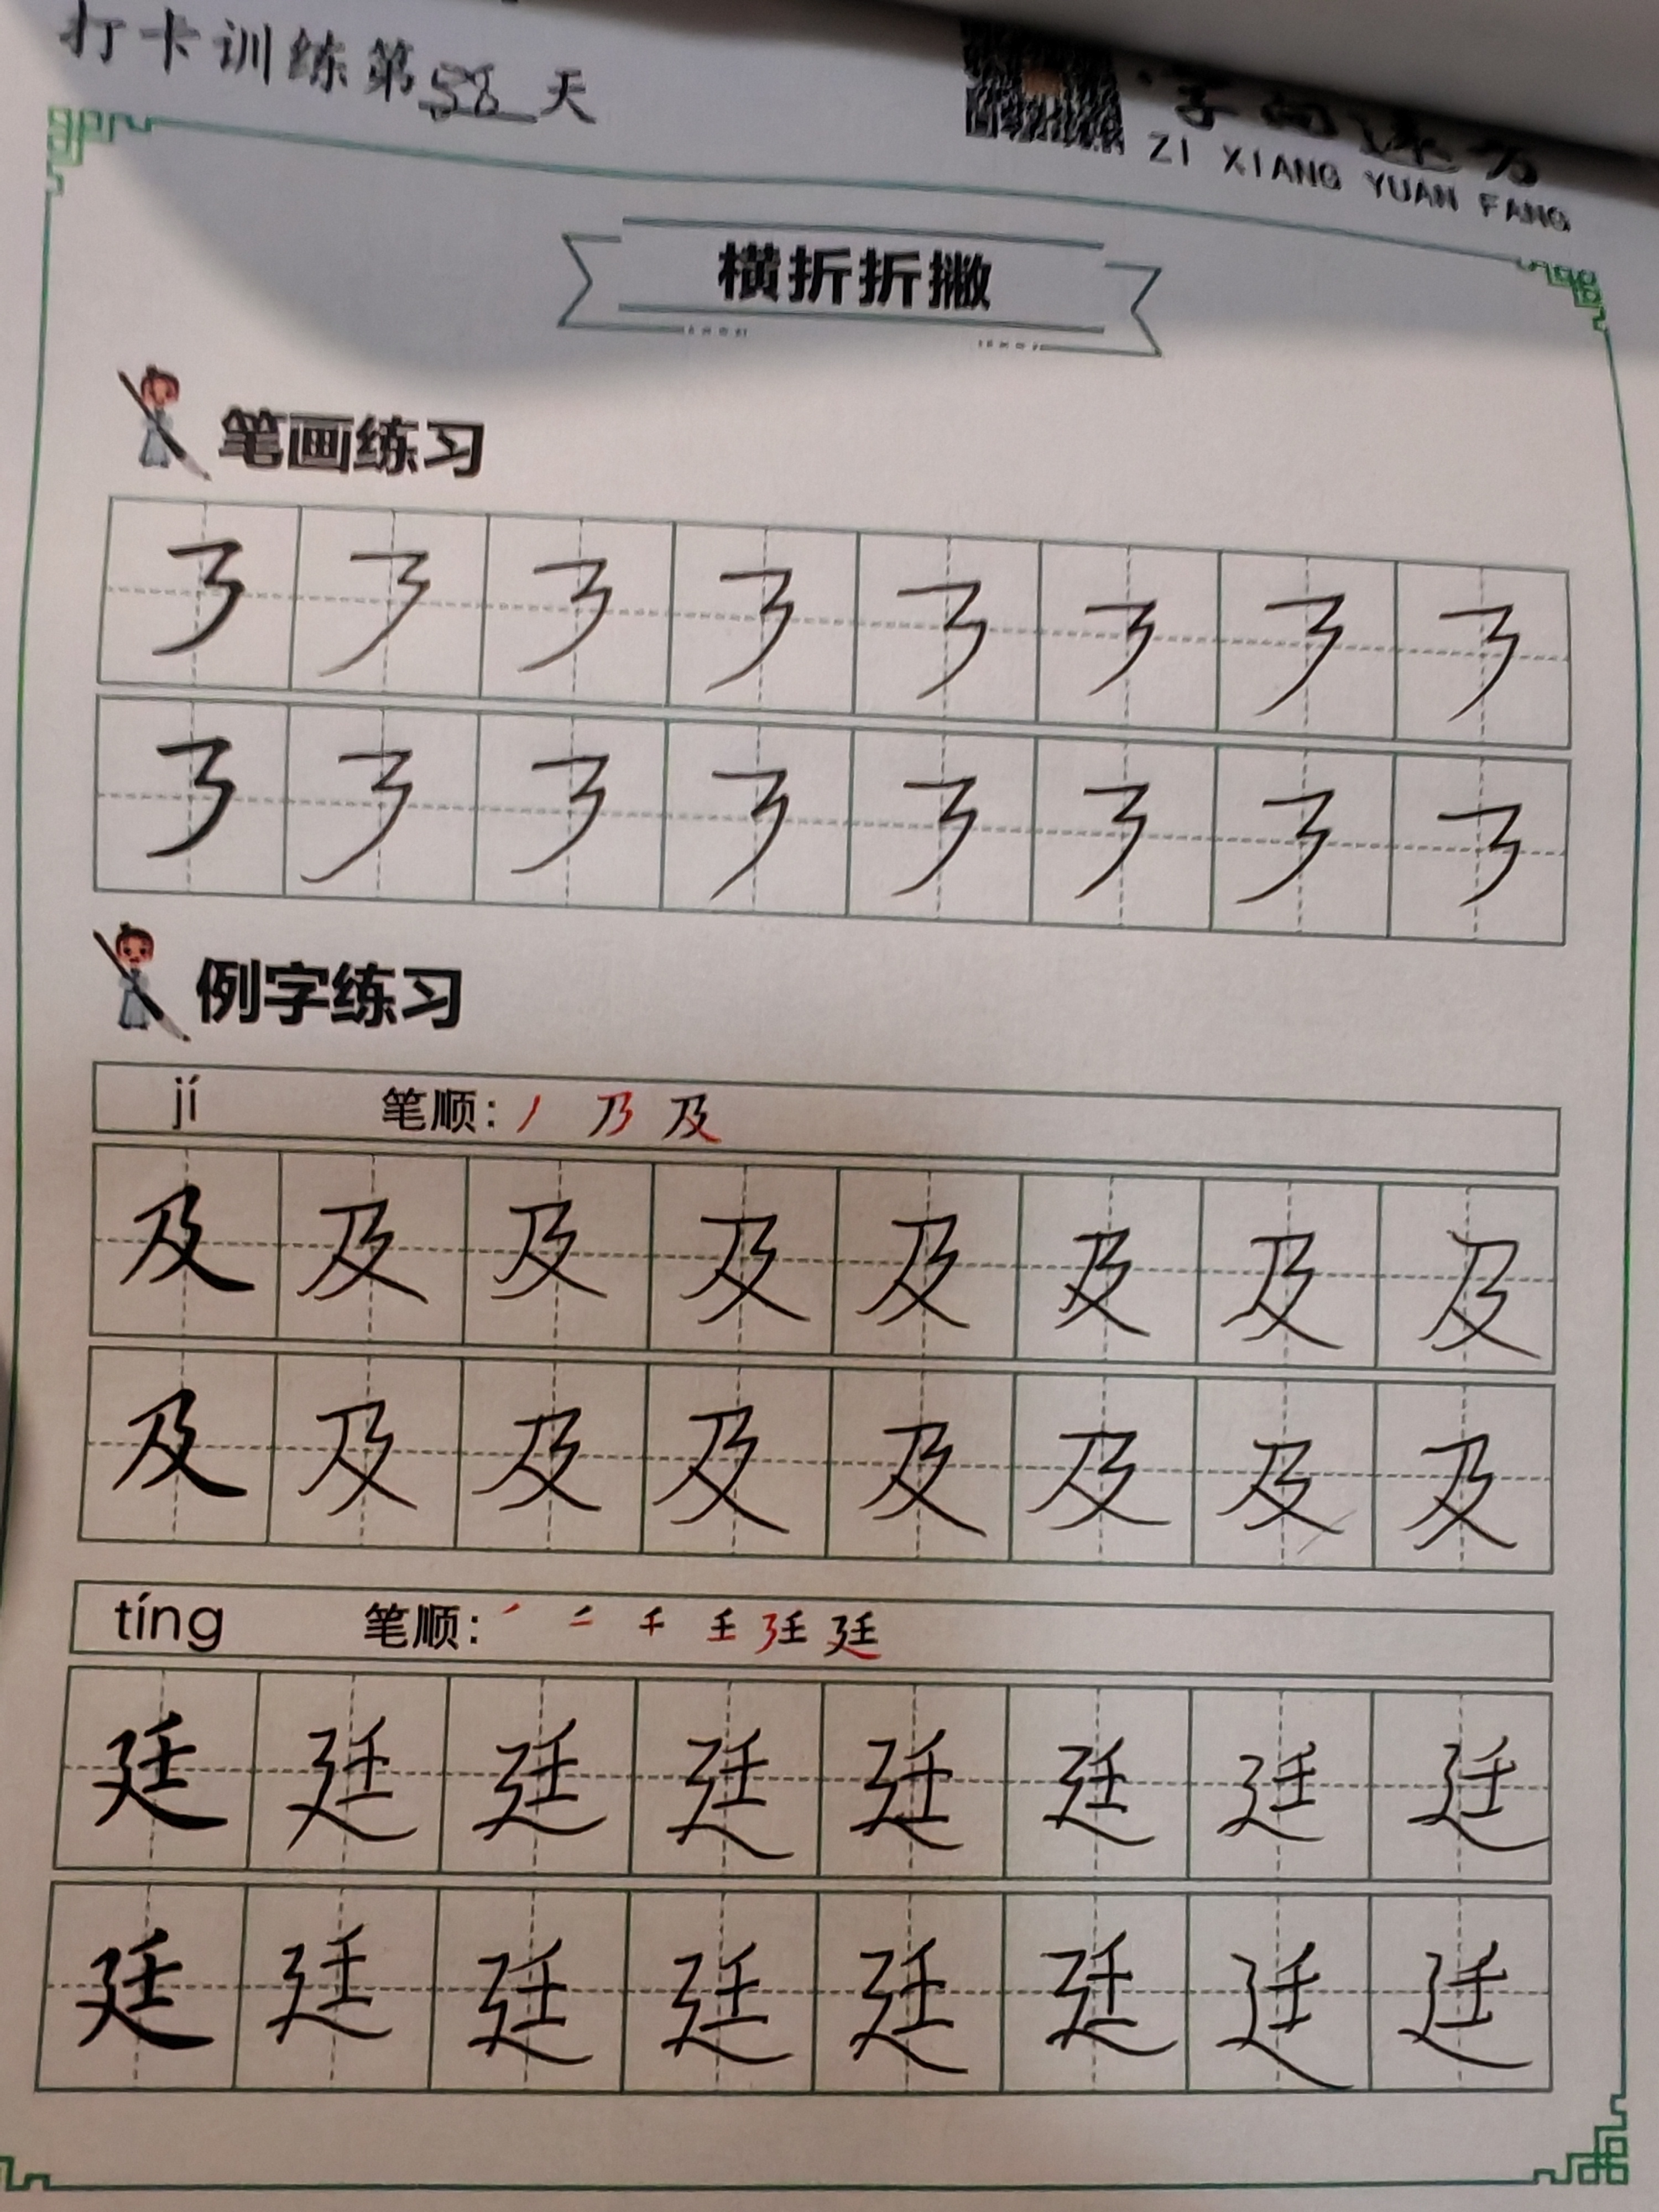 打卡训练第58天
字向远方
ZI XIANG YUAN FANG
横折折撇
笔画练习
㇋ ㇋ ㇋ ㇋ ㇋ ㇋ ㇋ ㇋
㇋ ㇋ ㇋ ㇋ ㇋ ㇋ ㇋ ㇋
例字练习
jí 笔顺: 丿 乃 及
及 及 及 及 及 及 及 及
及 及 及 及 及 及 及 及
tíng 笔顺:
廷 廷 廷 廷 廷 廷 廷 廷
廷 廷 廷 廷 廷 廷 廷 廷